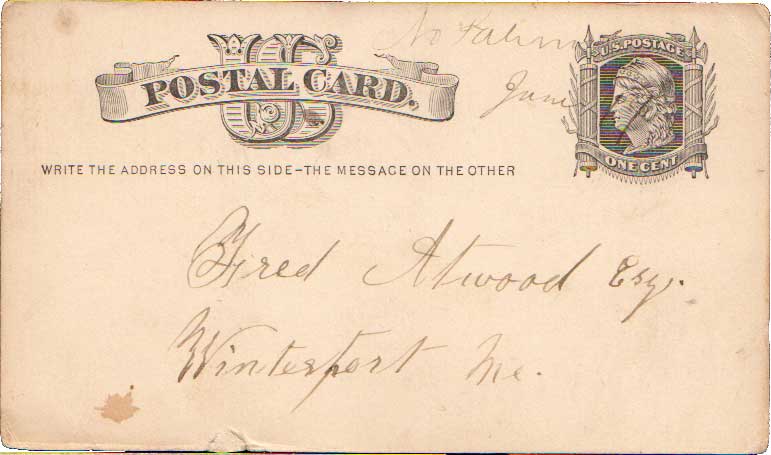 No Palerm
U.S. POSTAGE
US
POSTAL CARD.
June
ONE CENT
WRITE THE ADDRESS ON THIS SIDE–THE MESSAGE ON THE OTHER
Fred Atwood Esq.
Winterport Me.